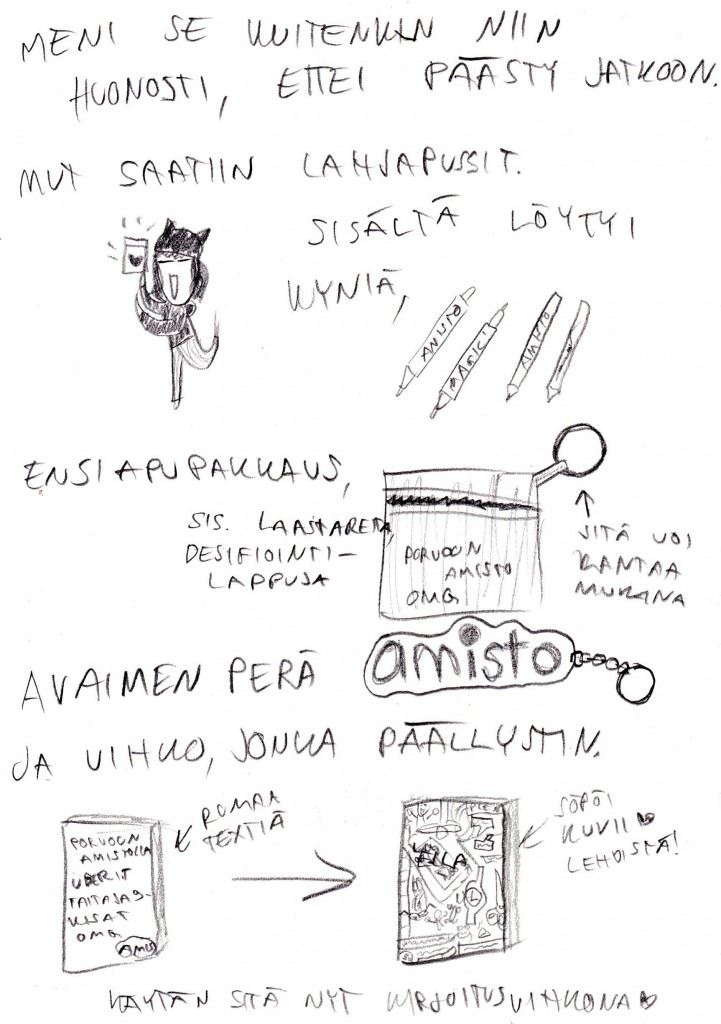 MENI SE KUITENKIN NIIN
HUONOSTI, ETTEI PÄÄSTY JATKOON.
MUT SAATIIN LAHJAPUSSIT.
SISÄLTÄ LÖYTYI
KYNIÄ,
AMISTO
ENSIAPUPAKKAUS,
SIS. LAASTAREITA,
DESIFIOINTI-
LAPPUJA
PORVOON
AMISTO
OMG
↑
SITÄ VOI
KANTAA
MUKANA
AVAIMEN PERÄ
amisto
JA VIHKO, JONKA PÄÄLLYSTIN.
PORVOON
AMISTOLLA
ÜBERIT
TAITAJA9-
KISAT
OMG
AMIS
RUMAA
TEXTIÄ
ELLA
SÖPÖI
KUVII
LEHDISTÄ!
KÄYTÄN SITÄ NYT KIRJOITUSVIHKONA